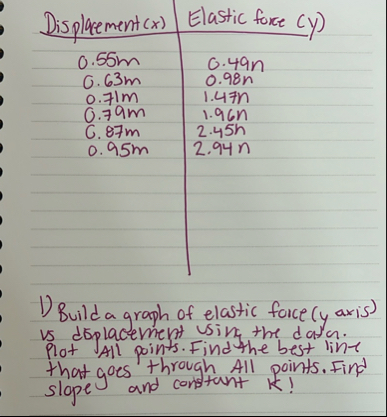 Displacement (x) Elastic force (y)
0.55m 0.49n
0.63m 0.98n
0.71m 1.47n
0.79m 1.96n
0.87m 2.45n
0.95m 2.94n
1) Build a graph of elastic force (y axis)
vs displacement using the data.
Plot All points. Find the best line
that goes through All points. Find
slope and constant K!